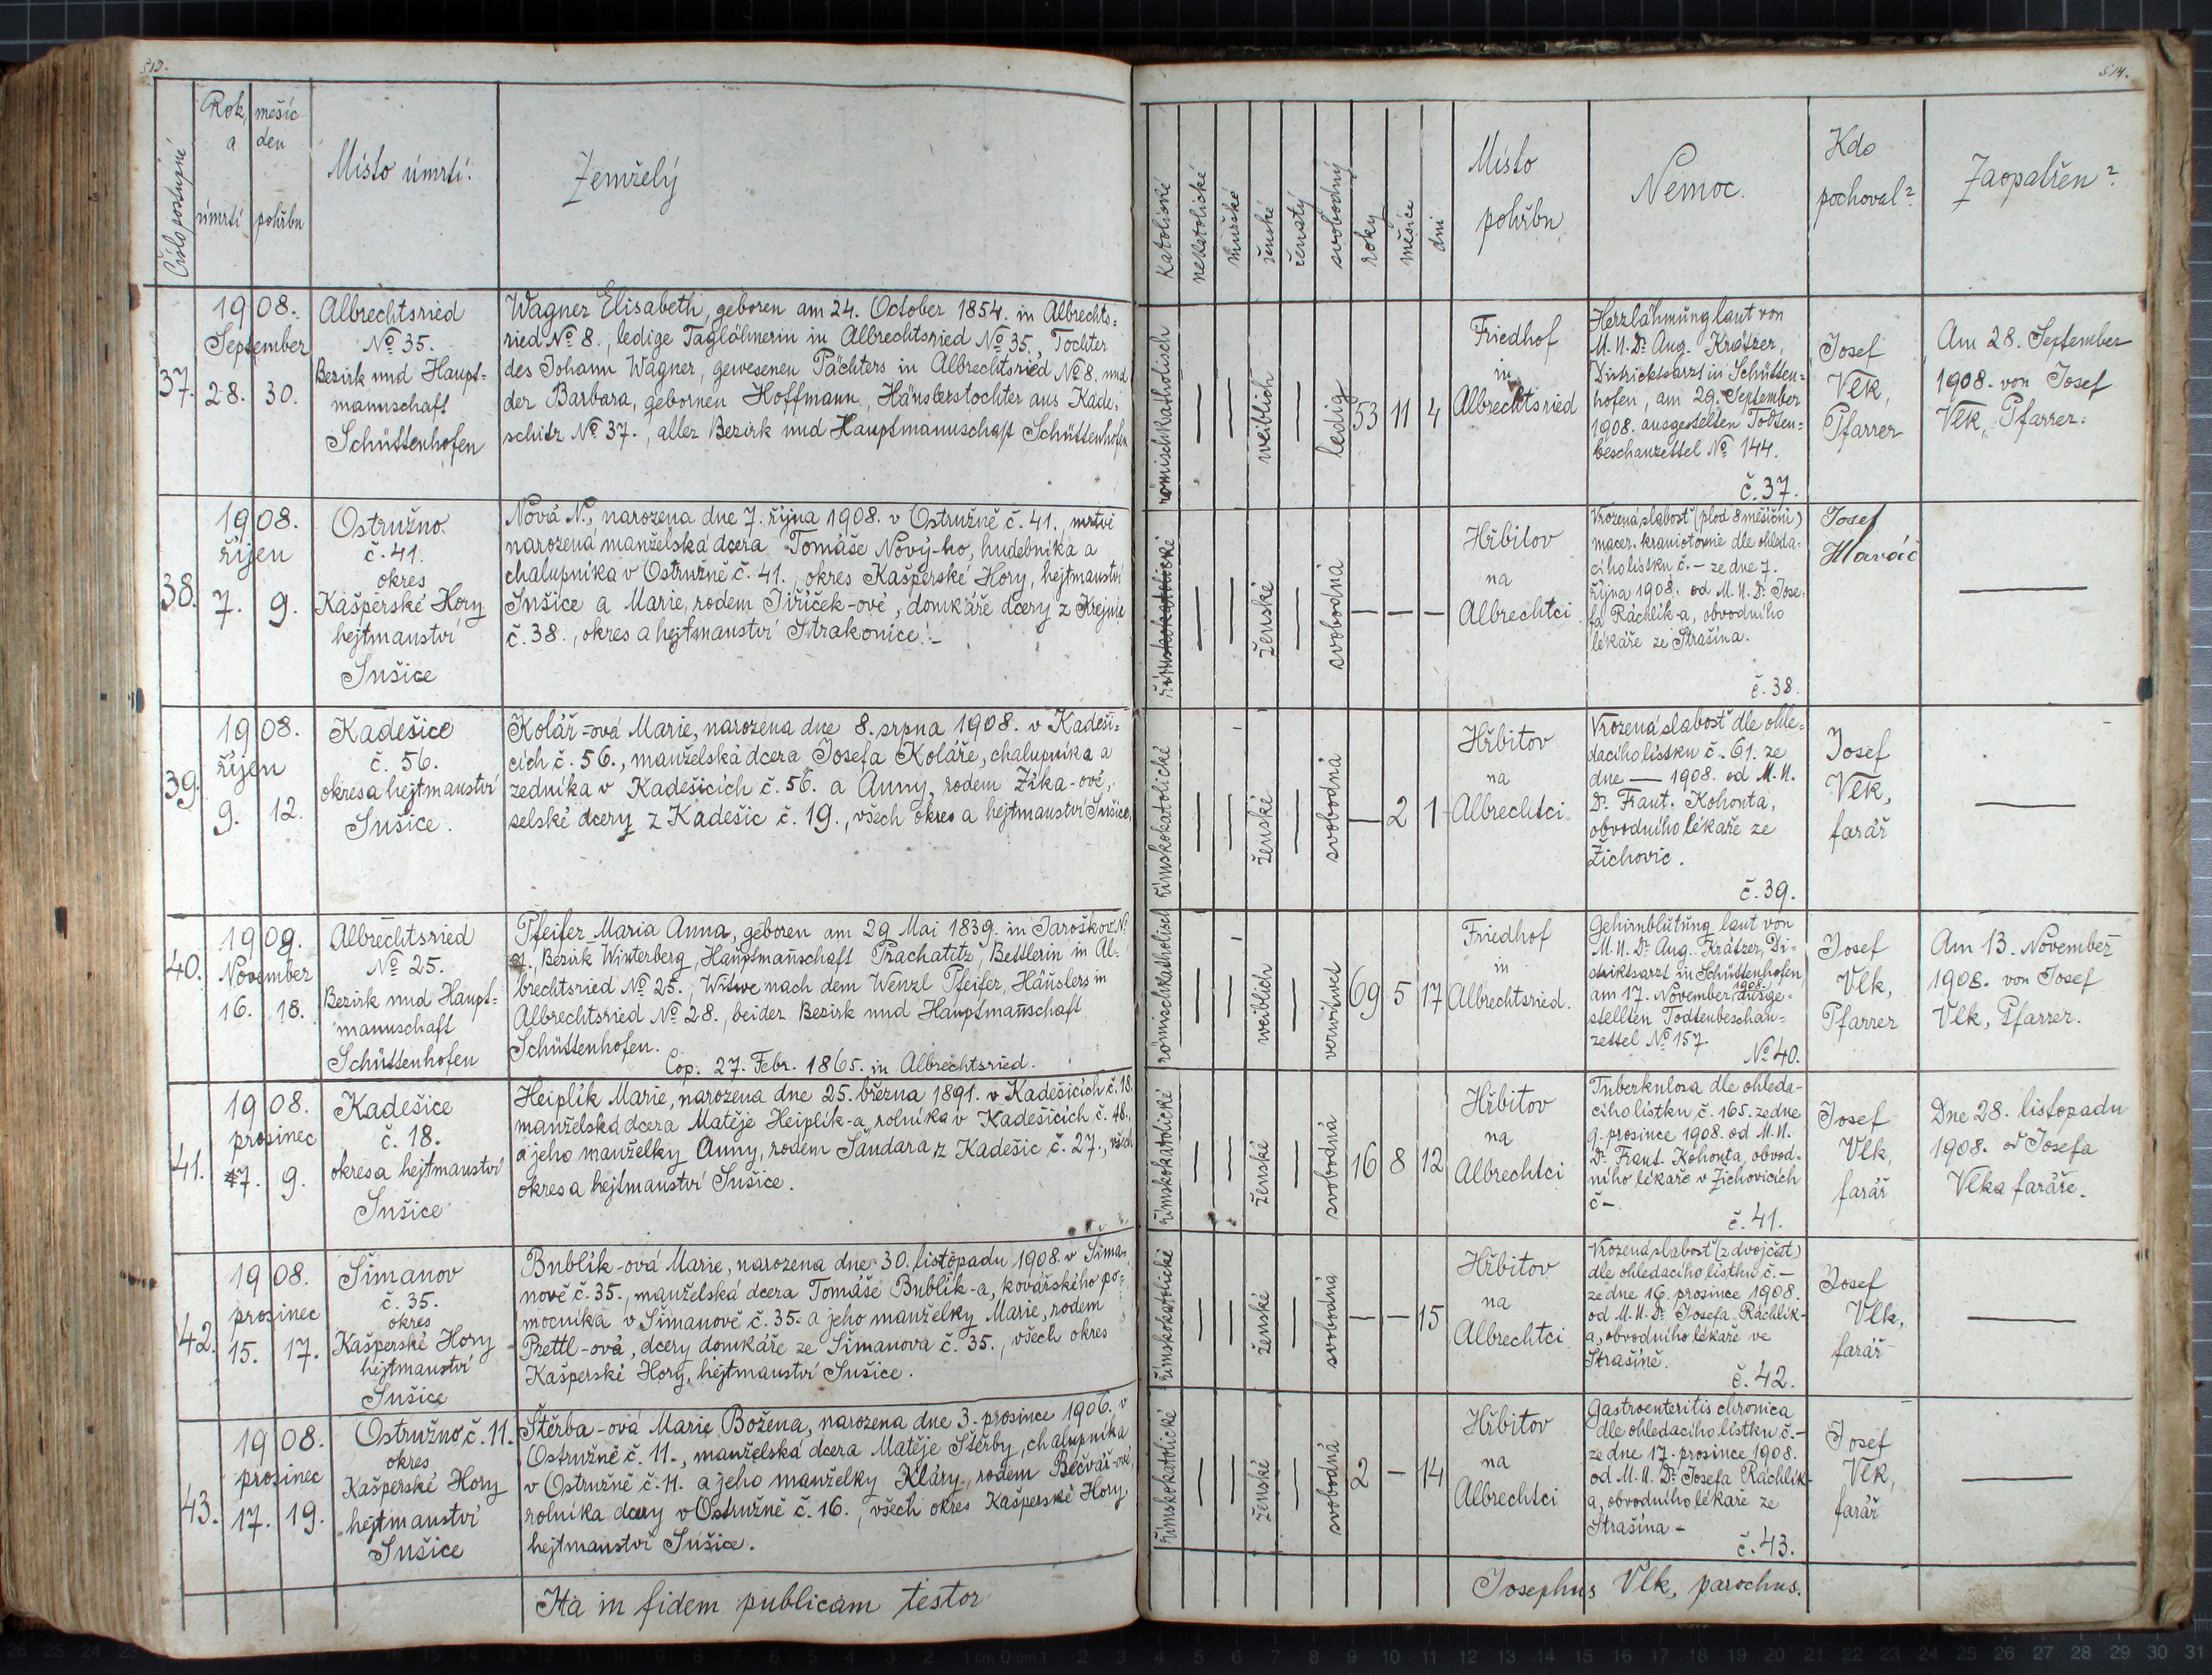 513.
Číslo postupné
Rok, měsíc
a den
úmrtí pohřbu
Místo úmrtí.
Zemřelý
37.
1908.
September
28. 30.
Albrechtsried
No 35.
Bezirk und Haupt-
mannschaft
Schüttenhofen
Wagner Elisabeth, geboren am 24. October 1854. in Albrechts-
ried No 8., ledige Taglöhnerin in Albrechtsried No 35., Tochter
des Johann Wagner, gewesenen Pächters in Albrechtsried No 8. und
der Barbara, gebornen Hoffmann, Häuslerstochter aus Kade-
schitz No 37., aller Bezirk und Hauptmannschaft Schüttenhofen
38.
1908.
říjen
7. 9.
Ostružno
č. 41.
okres
Kašperské Hory
hejtmanství
Sušice
Nová N., narozena dne 7. října 1908. v Ostružně č. 41., mrtvě
narozená manželská dcera Tomáše Nový-ho, hudebníka a
chalupníka v Ostružně č. 41., okres Kašperské Hory, hejtmanství
Sušice a Marie, rodem Jiříček-ové, domkáře dcery z Krejnic
č. 38., okres a hejtmanství Strakonice.-
39.
1908.
říjen
9. 12.
Kadešice
č. 56.
okres a hejtmanství
Sušice.
Kolář-ová Marie, narozena dne 8. srpna 1908. v Kadeši-
cích č. 56., manželská dcera Josefa Koláře, chalupníka a
zedníka v Kadešicích č. 56. a Anny, rodem Zíka-ové,
selské dcery z Kadešic č. 19., všech okres a hejtmanství Sušice.
40.
1909.
November
16. 18.
Albrechtsried
No 25.
Bezirk und Haupt-
mannschaft
Schüttenhofen
Pfeifer Maria Anna, geboren am 29 Mai 1839. in Jaroškov No
21., Bezirk Winterberg, Hauptmannschaft Prachatitz, Bettlerin in Al-
brechtsried No 25., Witwe nach dem Wenzl Pfeifer, Häuslers in
Albrechtsried No 28., beider Bezirk und Hauptmannschaft
Schüttenhofen.
Cop. 27. Febr. 1865. in Albrechtsried.
41.
1908.
prosinec
7. 9.
Kadešice
č. 18.
okres a hejtmanství
Sušice
Heiplík Marie, narozena dne 25. března 1891. v Kadešicích č. 18.
manželská dcera Matěje Heiplík-a, rolníka v Kadešicích č. 48.,
a jeho manželky Anny, rodem Šandara z Kadešic č. 27., všech
okres a hejtmanství Sušice.
42.
1908.
prosinec
15. 17.
Šimanov
č. 35.
okres
Kašperské Hory
hejtmanství
Sušice
Bublík-ová Marie, narozena dne 30. listopadu 1908. v Šima-
nově č. 35., manželská dcera Tomáše Bublík-a, kovářského po-
mocníka v Šimanově č. 35. a jeho manželky Marie, rodem
Prettl-ová, dcery domkáře ze Šimanova č. 35., všech okres
Kašperské Hory, hejtmanství Sušice.
43.
1908.
prosinec
17. 19.
Ostružno č. 11.
okres
Kašperské Hory
hejtmanství
Sušice
Štěrba-ová Marie Božena, narozena dne 3. prosince 1906. v
Ostružně č. 11., manželská dcera Matěje Štěrby, chalupníka
v Ostružně č. 11. a jeho manželky Kláry, rodem Bečvář-ové,
rolníka dcery v Ostružně č. 16., všech okres Kašperské Hory,
hejtmanství Sušice.
Ita in fidem publicam testor
514.
katolické
nekatolické
mužské
ženské
ženatý
svobodný
roky
měsíce
dni
Místo
pohřbu
Nemoc.
Kdo
pochoval?
Zaopatřen?
römischkatholisch
weiblich
ledig
53 11 4
Friedhof
in
Albrechtsried
Herzlähmung laut von
M.U.Dr. Aug. Krätzer,
Districktsarzt in Schütten-
hofen, am 29. September
1908. ausgestellten Todten-
beschauzettel No 144.
č. 37.
Josef
Vlk,
Pfarrer
Am 28. September
1908. von Josef
Vlk, Pfarrer.
římskokatolické
ženské
svobodná
— — —
Hřbitov
na
Albrechtci
Vrozená slabosť (plod 8 měsíční)
macer. kraniotomie dle ohleda-
cího lístku č. – ze dne 7.
října 1908. od M.U.Dr. Jose-
fa Ráchlík-a, obvodního
lékaře ze Strašína.
č. 38.
Josef
Hlaváč
římskokatolické
ženské
svobodná
— 2 1
Hřbitov
na
Albrechtci
Vrozená slabosť dle ohle-
dacího lístku č. 61. ze
dne — 1908. od M.U.
Dr. Frant. Kohouta,
obvodního lékaře ze
Žichovic.
č. 39.
Josef
Vlk,
farář
römischkatholisch
weiblich
verwitwet
69 5 17
Friedhof
in
Albrechtsried.
Gehirnblutung laut von
M.U.Dr. Aug. Krätzer, Di-
striktsarzt in Schüttenhofen,
am 17. November 1908. ausge-
stellten Todtenbeschau-
zettel No 157.
No 40.
Josef
Vlk,
Pfarrer
Am 13. November
1908. von Josef
Vlk, Pfarrer.
římskokatolické
ženské
svobodná
16 8 12
Hřbitov
na
Albrechtci
Tuberkulosa dle ohleda-
cího lístku č. 165. ze dne
9. prosince 1908. od M.U.
Dr. Frant. Kohouta, obvod-
ního lékaře v Žichovicích
č –.
č. 41.
Josef
Vlk,
farář
Dne 28. listopadu
1908. od Josefa
Vlka faráře.
římskokatolické
ženské
svobodná
— — 15
Hřbitov
na
Albrechtci
Vrozená slabosť (z dvojčat)
dle ohledacího lístku č. –
ze dne 16. prosince 1908.
od M.U.Dr. Josefa Ráchlík-
a, obvodního lékaře ve
Strašíně.
č. 42.
Josef
Vlk,
farář
římskokatolické
ženské
svobodná
2 – 14
Hřbitov
na
Albrechtci
Gastroenteritis chronica
dle ohledacího lístku č. –
ze dne 17. prosince 1908.
od M.U.Dr. Josefa Ráchlík-
a, obvodního lékaře ze
Strašína –
č. 43.
Josef
Vlk,
farář
Josephus Vlk, parochus.